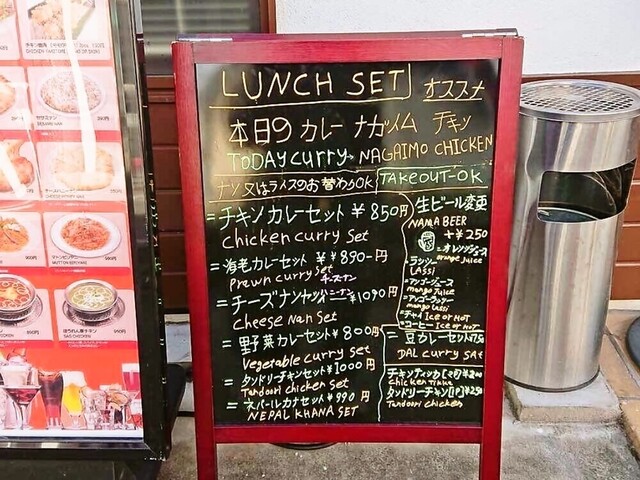 LUNCH SET オススメ
本日の カレー ナガイム チキン
TODAY CURRY NAGAIMO CHICKEN
ナン又はライスのお替わりOK TAKEOUT-OK
= チキンカレーセット ¥850円
chicken curry set
= 海老カレーセット ¥890-円
Prewn curry set
= チーズナンセット ¥1090円
Cheese Nan Set
= 野菜カレーセット ¥800円
Vegetable curry set
= タンドリーチキンセット ¥1000円
Tandoori chicken set
= ネパールカナセット ¥990円
NEPAL KHANA SET
生ビール変更
NAMA BEER
+¥250
=オレンジジュース
orange juice
ラッシー
LASSI
=マンゴージュース
mango Juice
=マンゴーラッシー
mango Lassi
=チャイ Ice or HOT
=コーヒー Ice or HOT
= 豆カレーセット
DAL curry SAt
チキンティッカ[1P]¥200
chicken TIKKE
タンドリーチキン[1P]¥250
Tandoori chicken